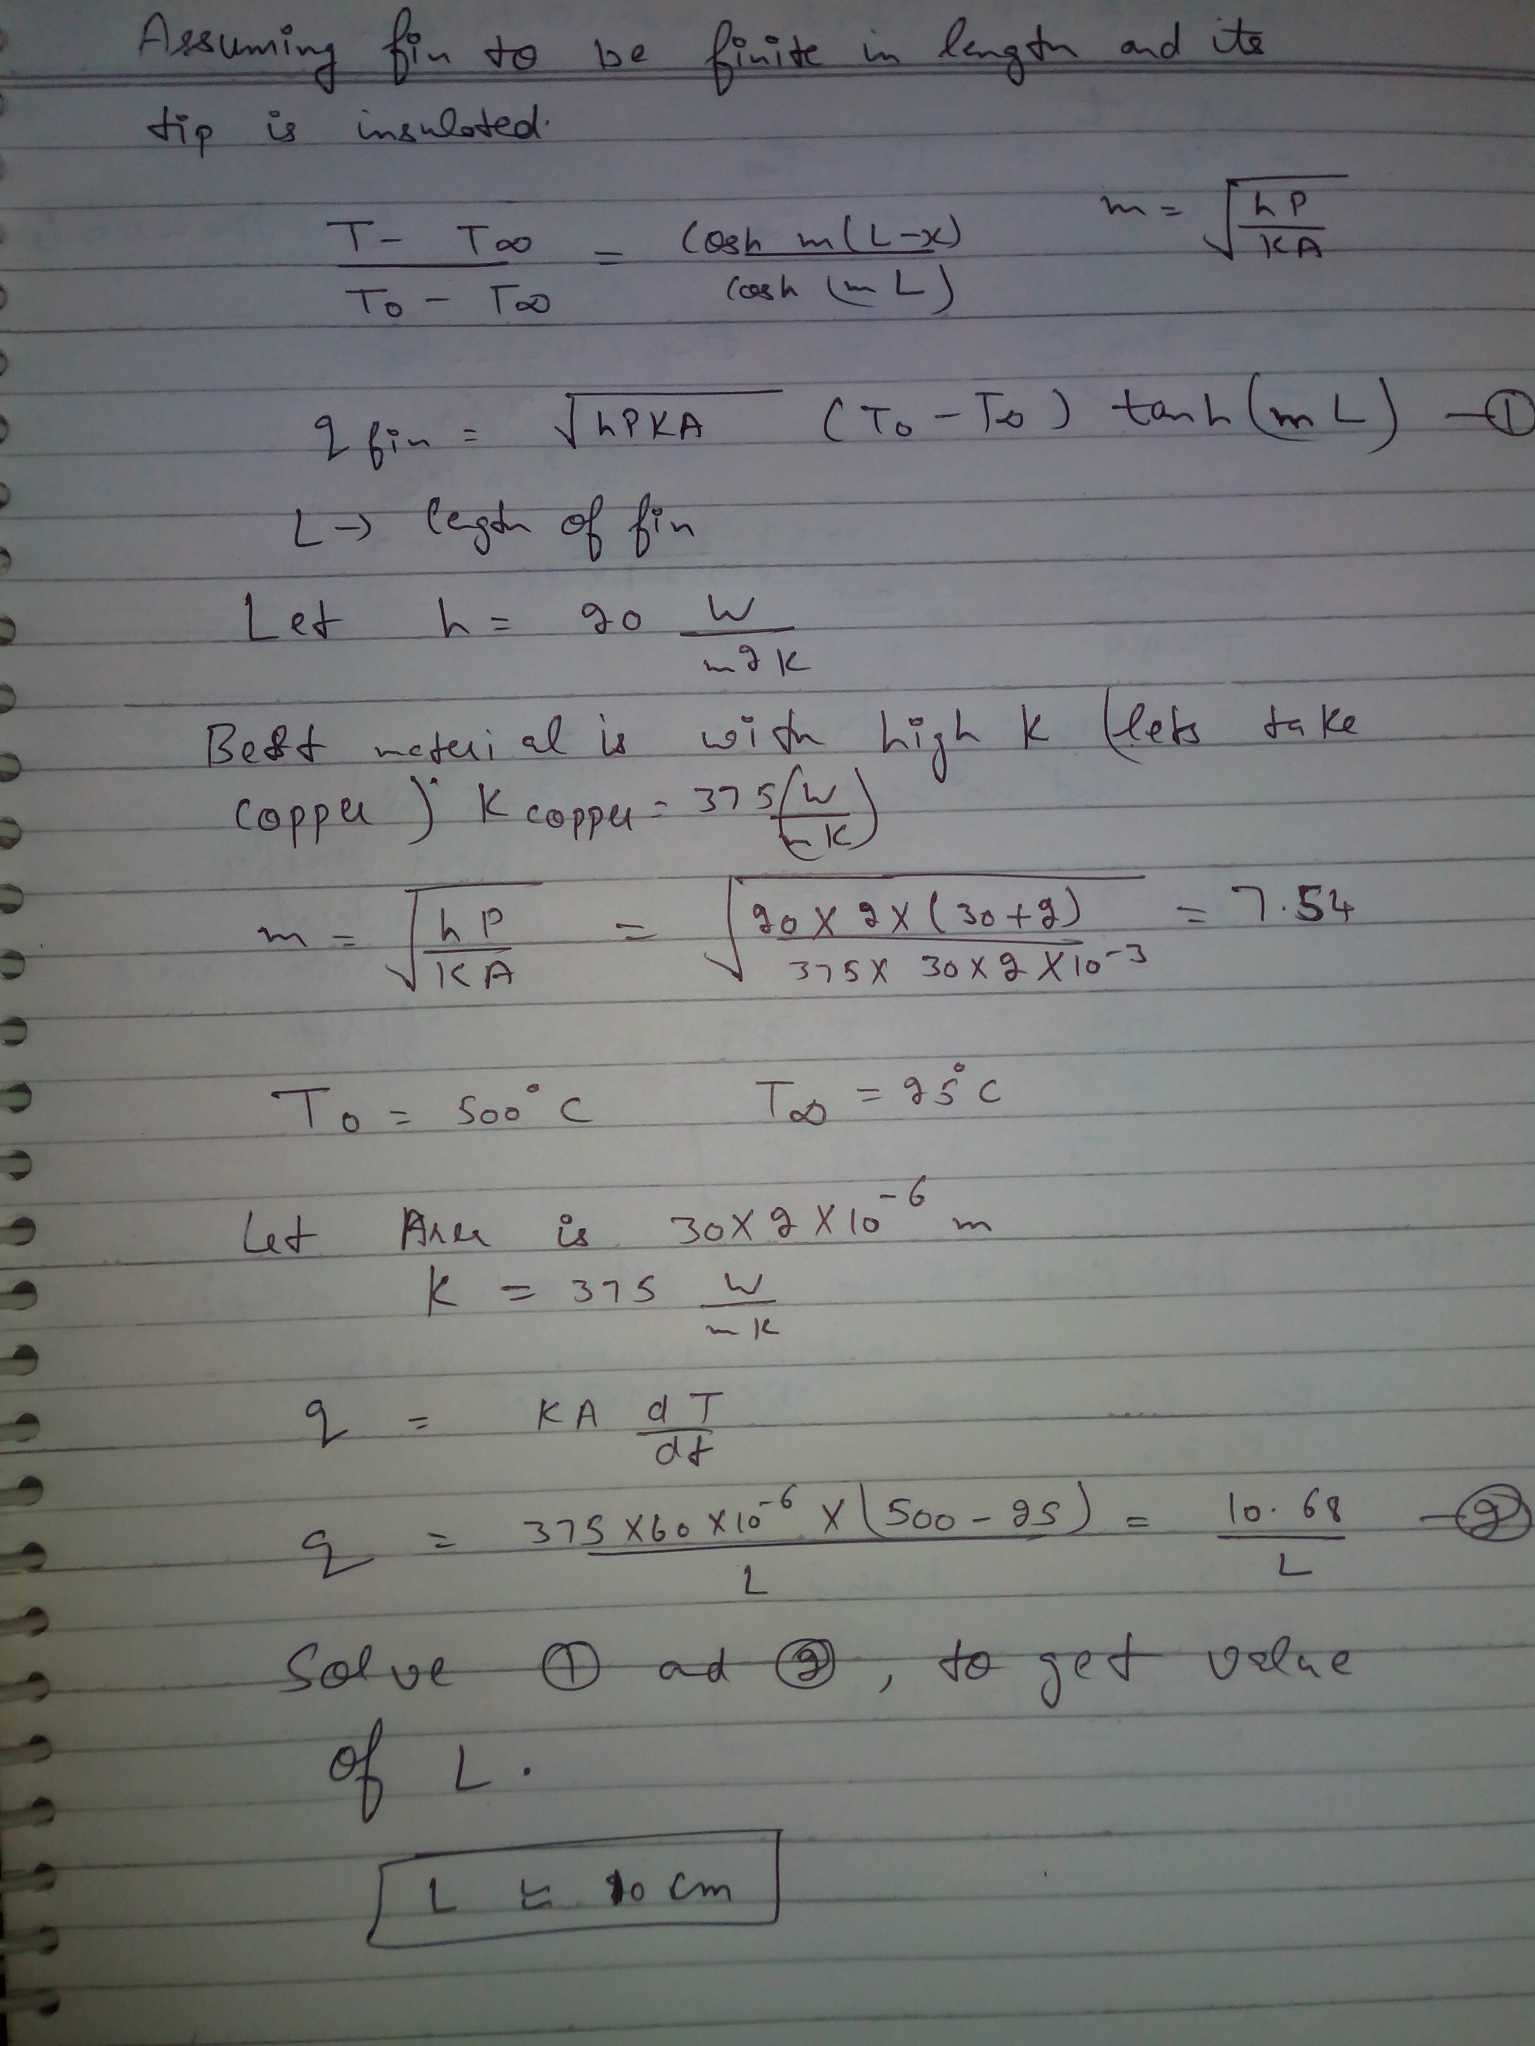 Assuming fin to be finite in length and its
tip is insulated.
T - T∞ / T0 - T∞ = cosh m(L-x) / cosh (mL) m = √(hP / KA)
q fin = √hPKA (T0 - T∞) tanh (mL) — ①
L → legth of fin
Let h = 20 W / m2 K
Best material is with high K (lets take
copper) K copper = 375 (W / mK)
m = √(hP / KA) = √(20 X 2 X (30+2) / 375 X 30 X 2 X 10⁻³) = 7.54
T0 = 500°C T∞ = 25°C
Let Area is 30 X 2 X 10⁻⁶ m
K = 375 W / mK
q = KA dT / dt
q = 375 X 60 X 10⁻⁶ X (500 - 25) / L = 10.68 / L — ②
Solve ① ad ②, to get value
of L.
L ≈ 10 cm